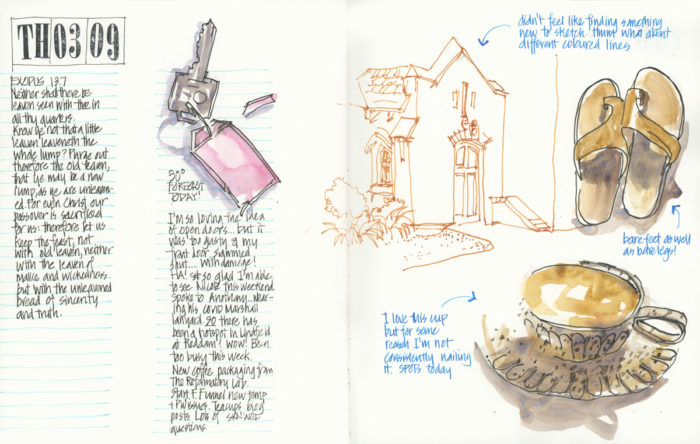 TH 03 09
EXODUS 13.7
Neither shall there be
leaven seen with thee in
all thy quarters.
Know ye not that a little
leaven leaveneth the
whole lump? Purge out
therefore the old leaven,
that ye may be a new
lump, as ye are unleaven-
ed. For even Christ our
passover is sacrificed
for us: therefore let us
keep the feast, not
with old leaven, neither
with the leaven of
malice and wickedness.
but with the unleavened
bread of sincerity
and truth.
30°
FORECAST
TODAY!
I'm so loving the idea
of open doors... but it
was too gusty & my
front door slammed
shut.... with damage!
HA! so glad I'm able
to see Nicola this weekend
spoke to Anthony... wear-
ing his COVID Marshall
lanyard. 20 there has
been a hotspot in Lindfield
at Reddam! Wow! Been
too busy this week.
New coffee packaging from
The Reformatory Lab.
Start F. Funnel new temp
+ PW issues. Teacups blog
posts. Lots of
questions.
didn't feel like finding something
new to sketch. thinking what about
different coloured lines
bare feet as well
as bare legs!
I love this cup
but for some
reason I'm not
consistently nailing
it. SPOTS today